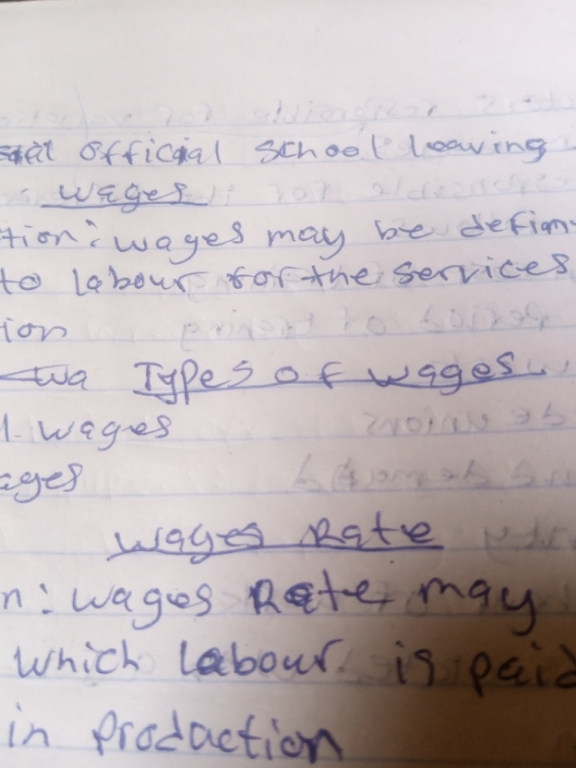 official school leaving
wages
tion: wages may be define
to labour for the services
ion
Types of wages
l wages
ages
wages Rate
n: wages Rate may
which labour is paid
in prodaction